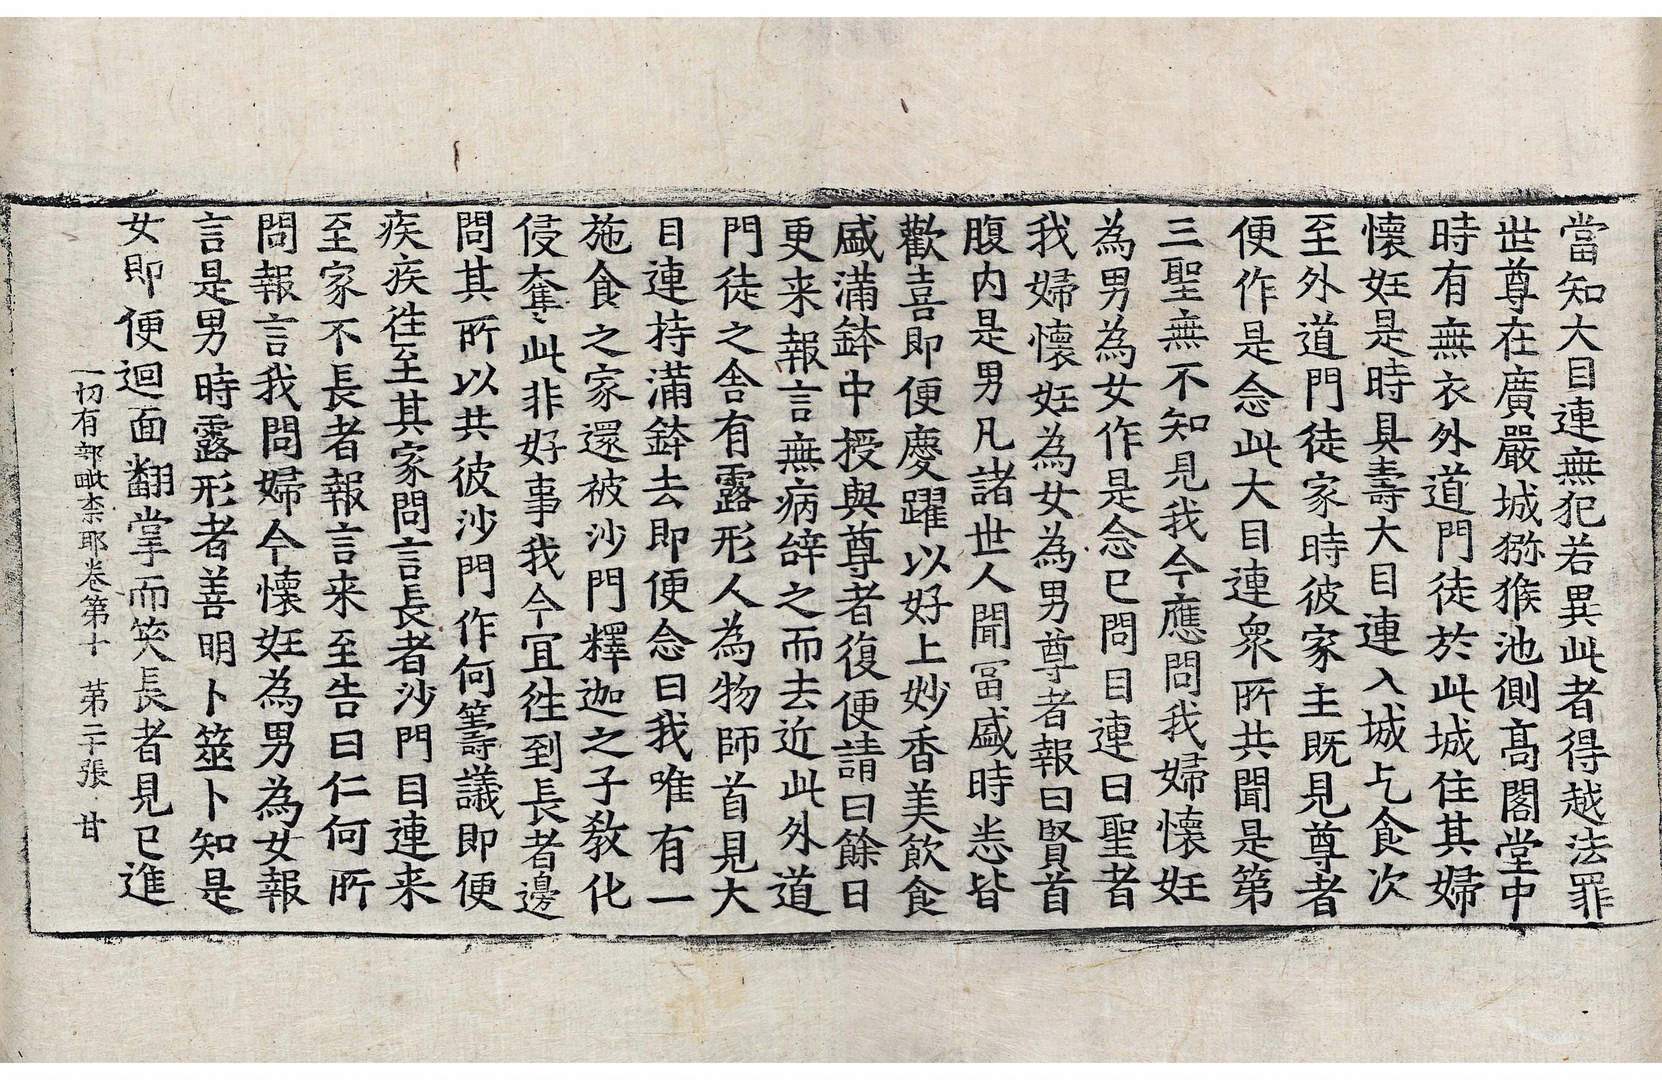 當知大目連無犯若異此者得越法罪
世尊在廣嚴城獼猴池側高閣堂中
時有無衣外道門徒於此城住其婦
懷妊是時具壽大目連入城乞食次
至外道門徒家時彼家主既見尊者
便作是念此大目連衆所共聞是第
三聖無不知見我今應問我婦懷妊
為男為女作是念已問目連曰聖者
我婦懷妊為女為男尊者報曰賢首
腹内是男凡諸世人聞冨盛時悉皆
歡喜即便慶躍以好上妙香美飲食
盛滿鉢中授與尊者復便請曰餘日
更来報言無病辞之而去近此外道
門徒之舍有露形人為物師首見大
目連持滿鉢去即便念曰我唯有一
施食之家還被沙門釋迦之子教化
侵奪〻此非好事我今冝徃到長者邊
問其所以共彼沙門作何筹議即便
疾疾徃至其家問言長者沙門目連来
至家不長者報言来至告曰仁何所
問報言我問婦今懷妊為男為女報
言是男時露形者善明卜筮卜知是
女即便迴面翻掌而笑長者見已進
一切有部毗柰耶卷第十　第二十張　甘